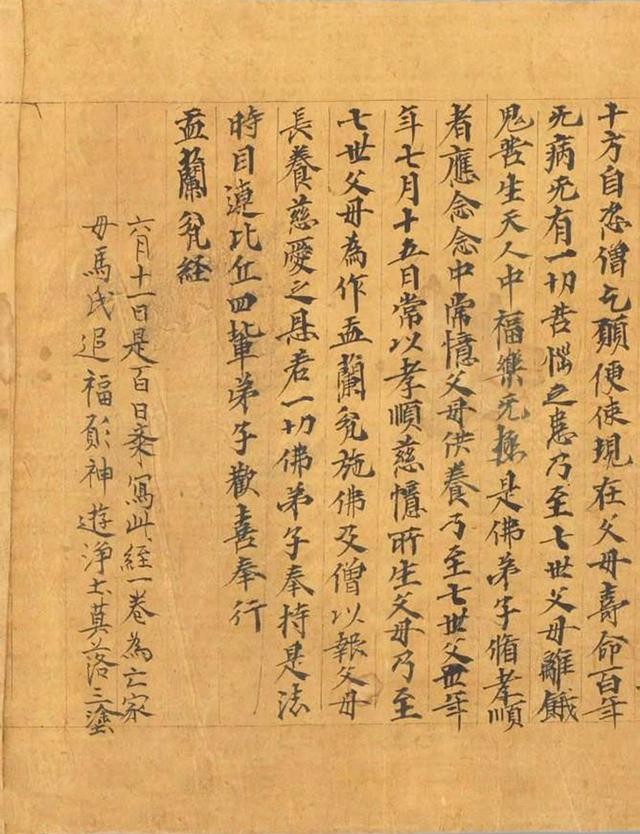 十方自恣僧乞願便使現在父母壽命百年
无病无有一切苦惱之患乃至七世父母離餓
鬼苦生天人中福樂无極是佛弟子脩孝順
者應念念中常憶父母供養乃至七世父母年
年七月十五日常以孝順慈憶所生父母乃至
七世父母為作盂蘭瓫施佛及僧以報父母
長養慈愛之恩若一切佛弟子奉持是法
時目連比丘四輩弟子歡喜奉行
盂蘭瓫経
六月十一日是百日齋寫此經一卷為亡家
母馬氏追福願神遊淨土莫落三塗